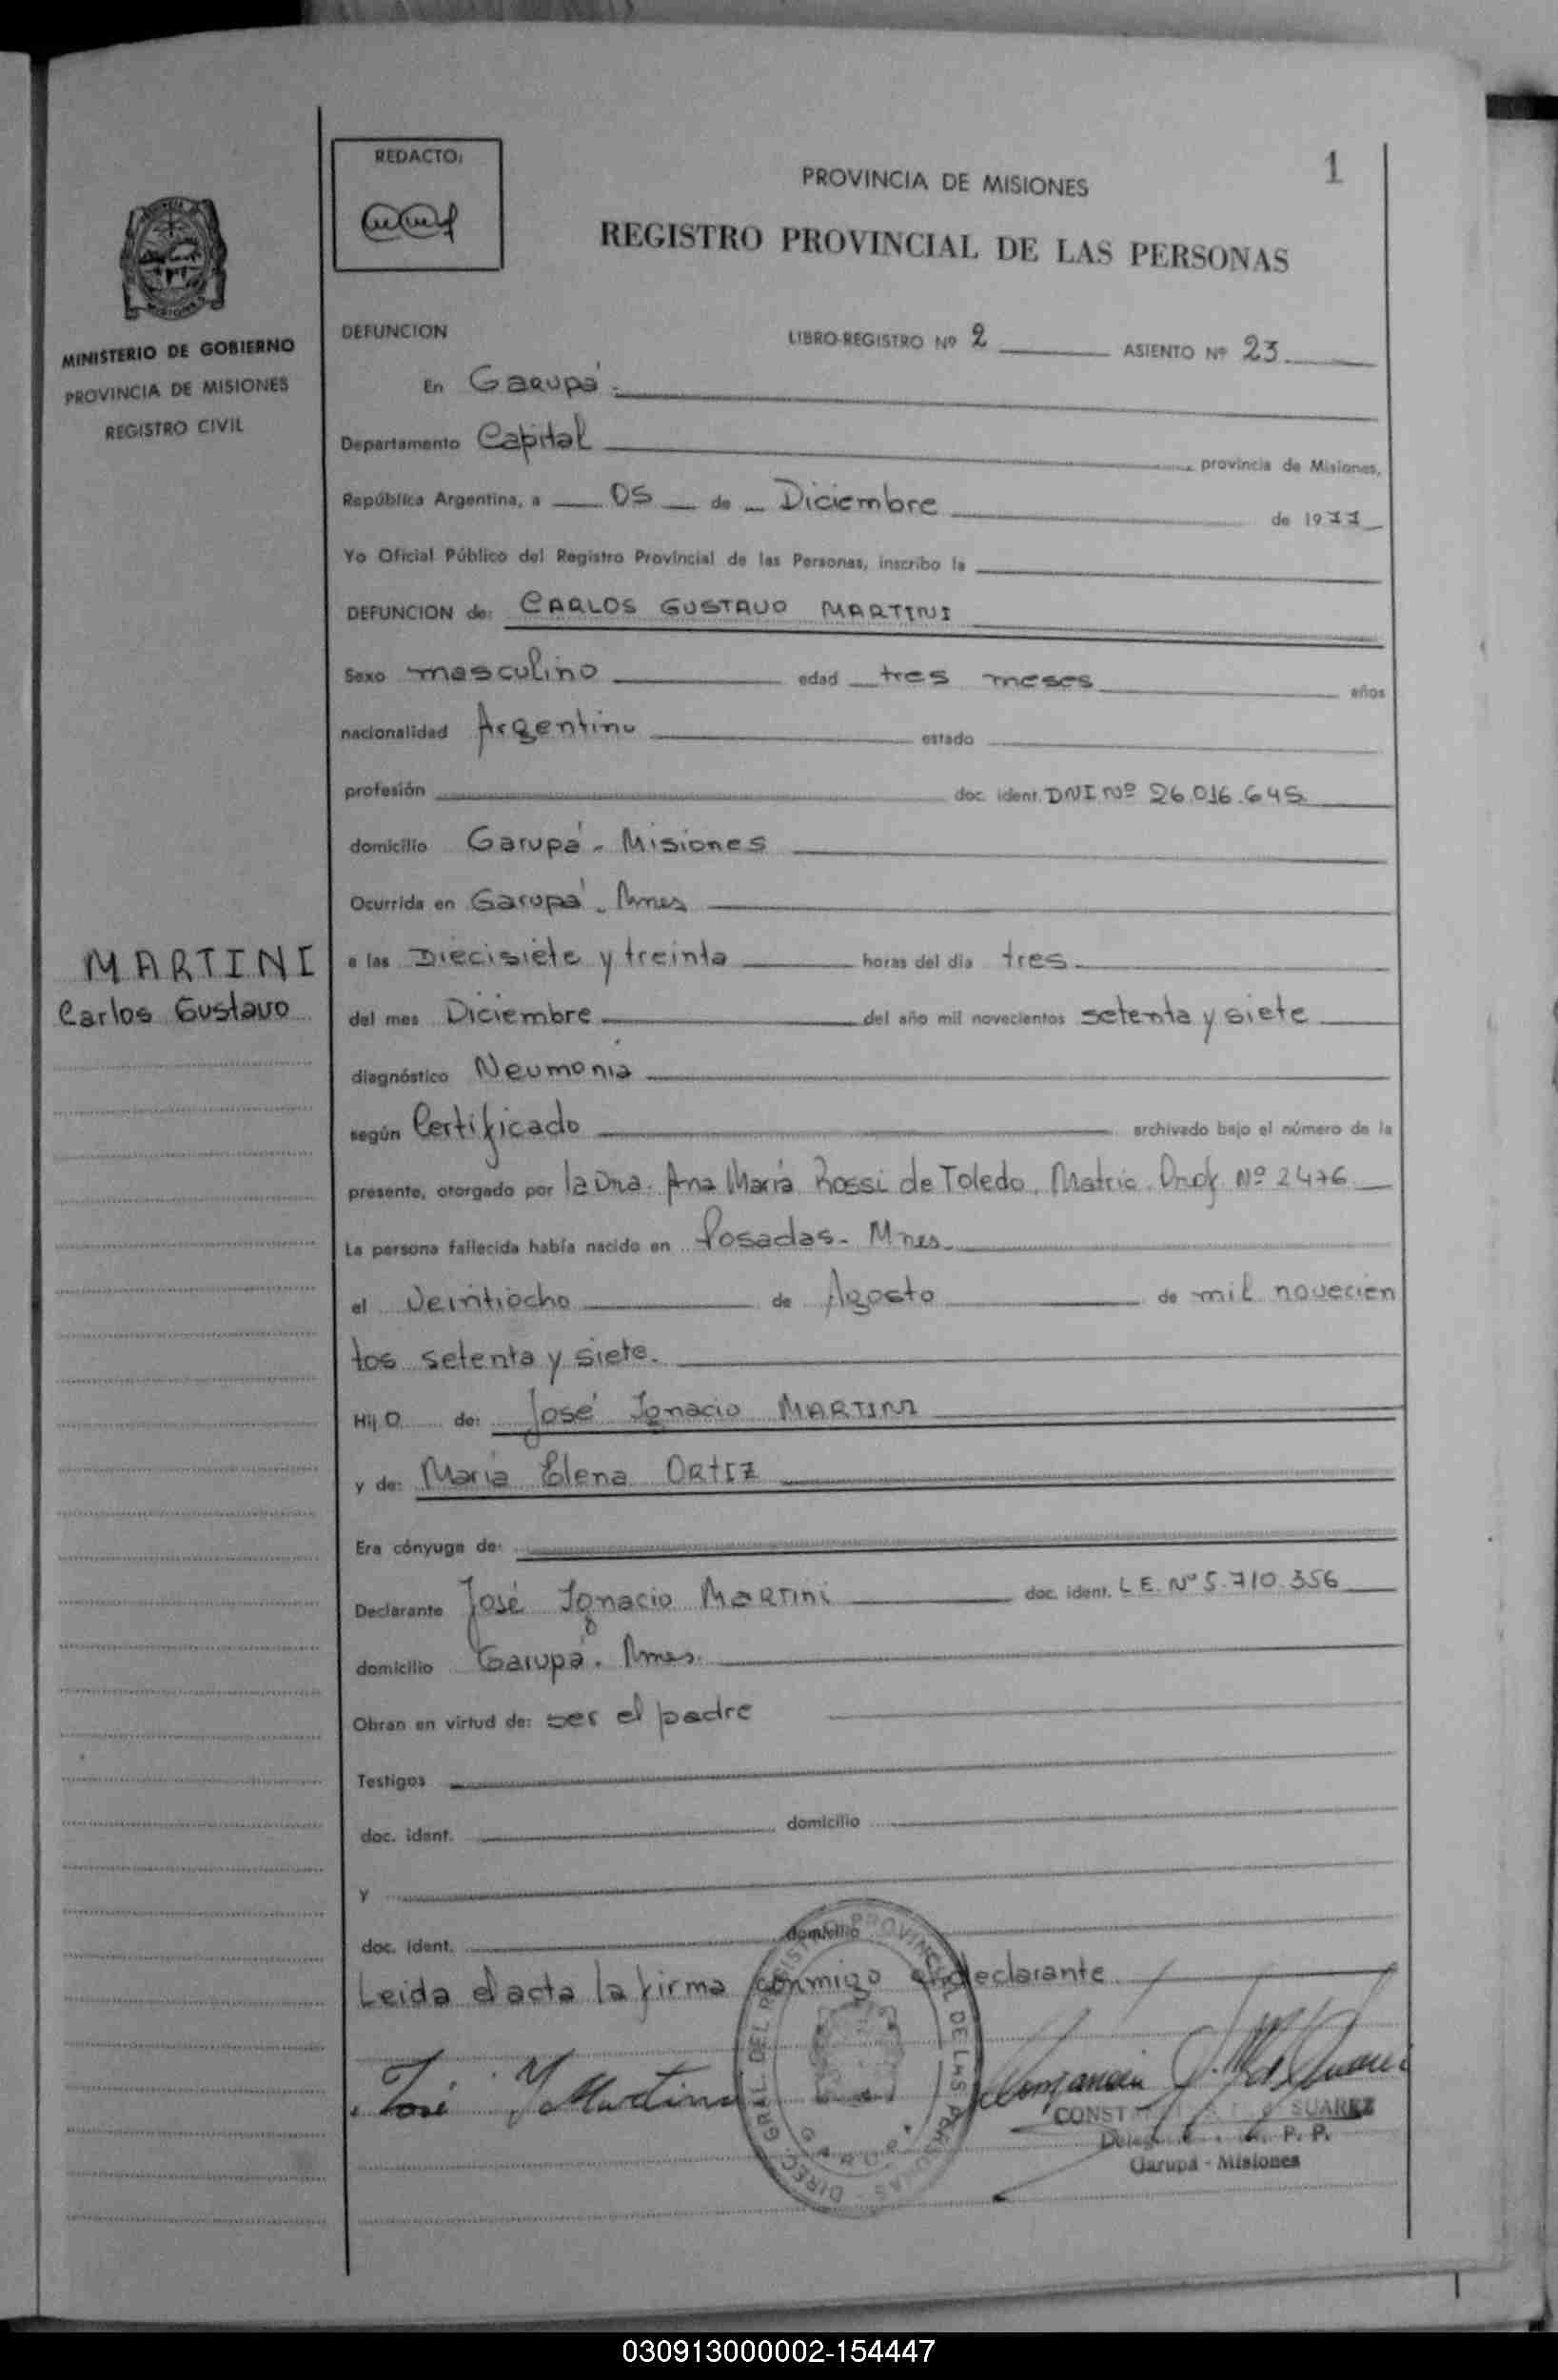 1
REDACTO:
PROVINCIA DE MISIONES
REGISTRO PROVINCIAL DE LAS PERSONAS
MINISTERIO DE GOBIERNO
PROVINCIA DE MISIONES
REGISTRO CIVIL
DEFUNCION LIBRO-REGISTRO Nº 2 ASIENTO Nº 23
En Garupá.
Departamento Capital provincia de Misiones,
República Argentina, a 05 de Diciembre de 1977
Yo Oficial Público del Registro Provincial de las Personas, inscribo la
DEFUNCION de: CARLOS GUSTAVO MARTINI
Sexo masculino edad tres meses años
nacionalidad Argentino estado
profesión doc. ident. DNI Nº 26.016.645
domicilio Garupá - Misiones
Ocurrida en Garupá - Mnes
MARTINI
Carlos Gustavo
a las Diecisiete y treinta horas del día tres
del mes Diciembre del año mil novecientos setenta y siete
diagnóstico Neumonia
según Certificado archivado bajo el número de la
presente, otorgado por la Dra. Ana María Rossi de Toledo, Matric. Prof. Nº 2476
La persona fallecida había nacido en Posadas - Mnes
el Veintiocho de Agosto de mil novecien
tos setenta y siete.
Hij O de: José Ignacio MARTINI
y de: María Elena ORTIZ
Era cónyuge de:
Declarante José Ignacio MARTINI doc. ident. L E. Nº 5.710.356
domicilio Garupá. Mnes.
Obran en virtud de: ser el padre
Testigos
doc. ident. domicilio
y
doc. ident. domicilio
Leida el acta la firma conmigo el declarante
José I Martini
DIREC. GRAL. DEL REGISTRO PROVINCIAL DE LAS PERSONAS
SUAREZ
P. P.
Garupá - Misiones
030913000002-154447